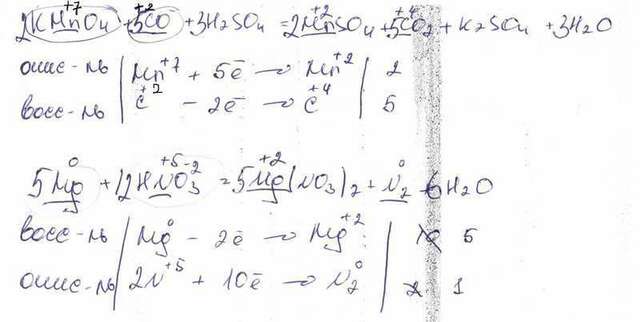 2KMn⁺⁷O₄ + 5C⁺²O + 3H₂SO₄ = 2Mn⁺²SO₄ + 5C⁺⁴O₂ + K₂SO₄ + 3H₂O
окис-ль | Mn⁺⁷ + 5ē → Mn⁺² | 2
восс-ль | C⁺² - 2ē → C⁺⁴ | 5
5Mg⁰ + 12HN⁺⁵O₃⁻² = 5Mg⁺²(NO₃)₂ + N₂⁰ + 6H₂O
восс-ль | Mg⁰ - 2ē → Mg⁺² | 5
окис-ль | 2N⁺⁵ + 10ē → N₂⁰ | 1